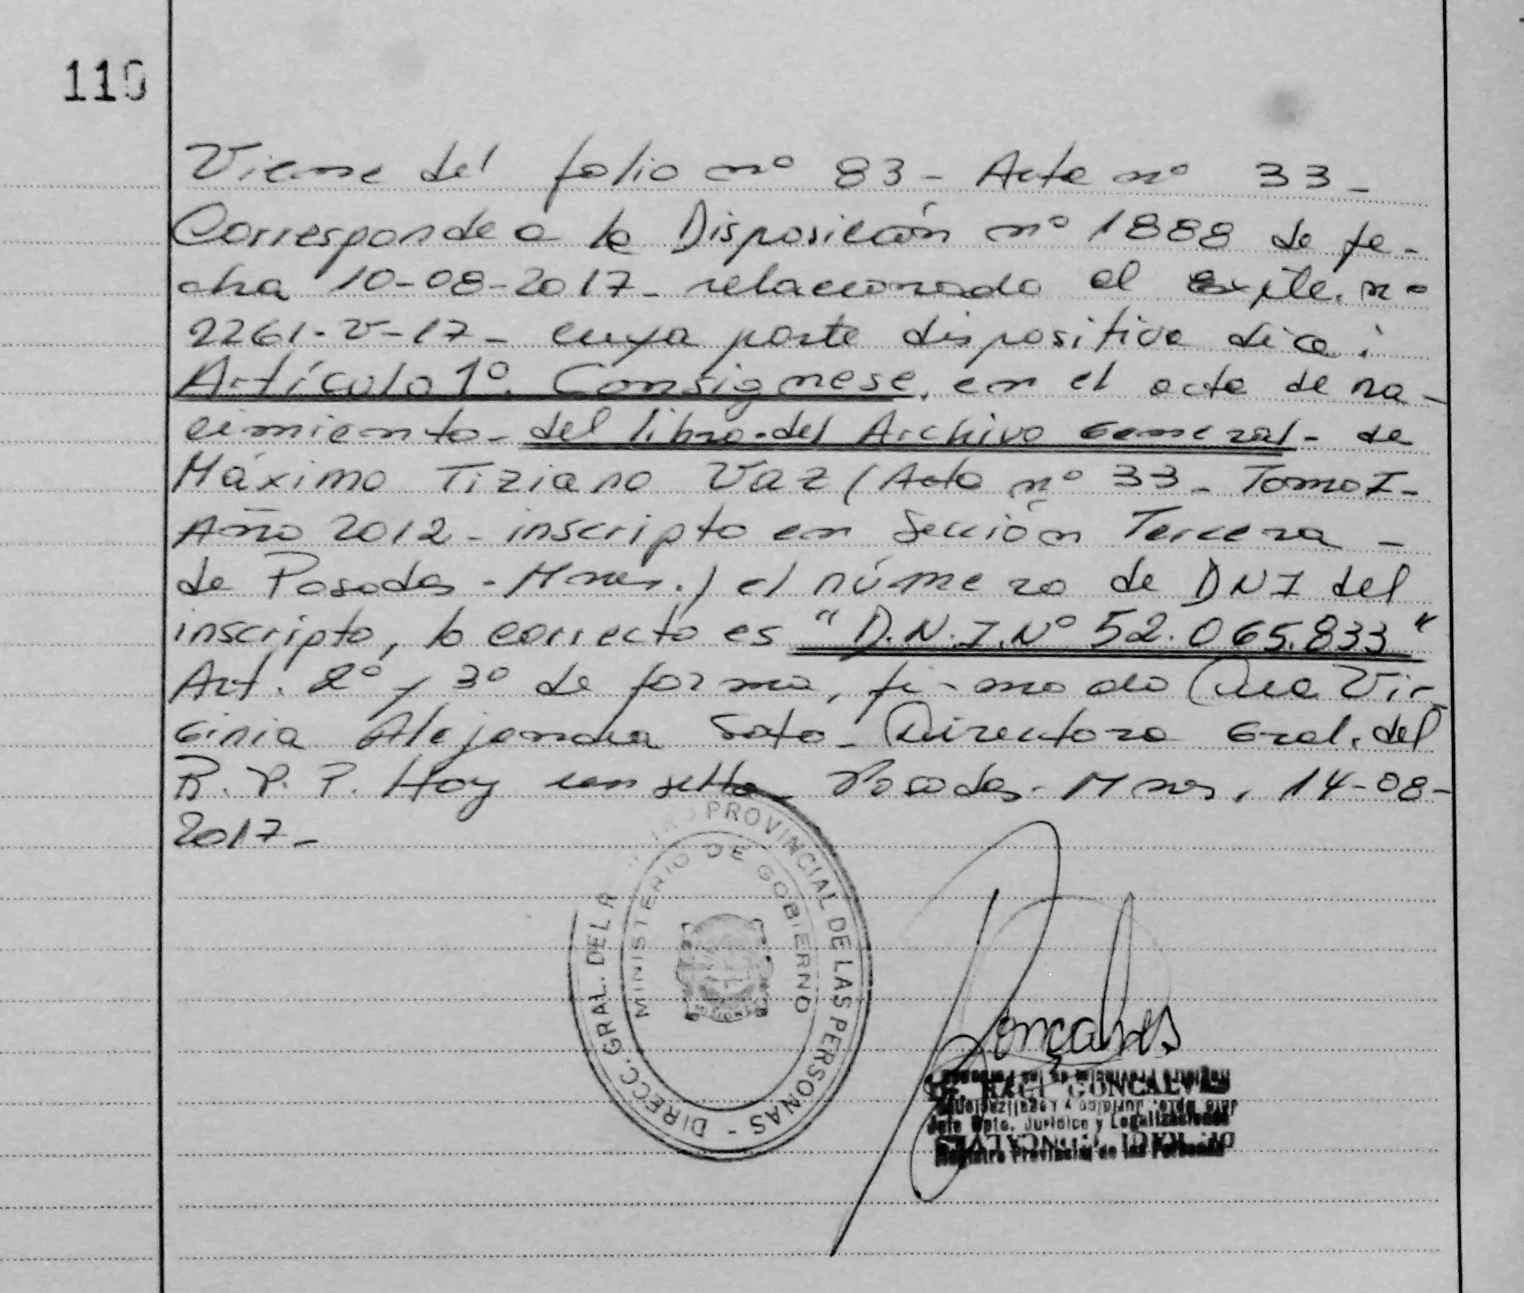 110
Viene del folio nº 83 - Acta nº 33 -
Corresponde a la Disposición nº 1888 de fe-
cha 10-08-2017 - relacionado al Expte. nº
2261-V-17 - cuya parte dispositiva dice:
Artículo 1º. Consignese, en el acta de na-
cimiento - del libro del Archivo General - de
Máximo Tiziano Vaz (Acta nº 33 - Tomo I -
Año 2012 - inscripto en Sección Tercera -
de Posadas - Mnes.) el número de DNI del
inscripto, lo correcto es "D.N.I. Nº 52.065.833"
Art. 2º y 3º de forma, firmado Dra Vir-
ginia Alejandra Soto - Directora Gral. del
R.P.P. Hoy un sello - Posadas - Mnes, 14-08-
2017 -
DIRECC. GRAL. DEL PROVINCIAL DE LAS PERSONAS -
MINISTERIO DE GOBIERNO
MISIONES
Gonçalves
Dr. RAUL GONCALVES
Jefe Dpto. Jurídico y Legalizaciones
Registro Provincial de las Personas